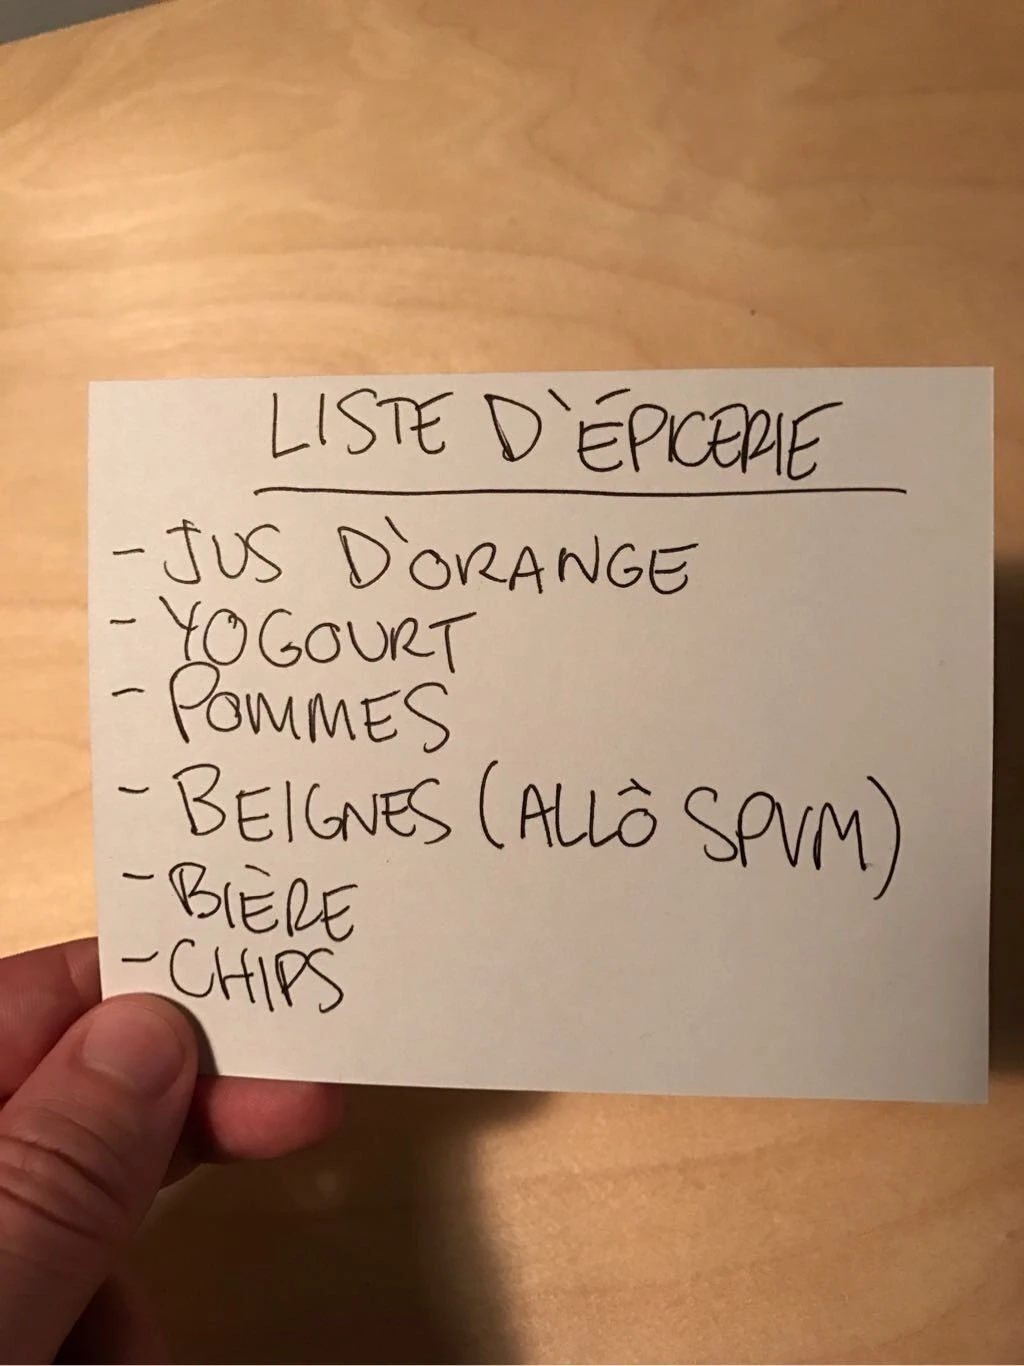 LISTE D'ÉPICERIE
- JUS D'ORANGE
- YOGOURT
- POMMES
- BEIGNES (ALLÔ SPVM)
- BIÈRE
- CHIPS